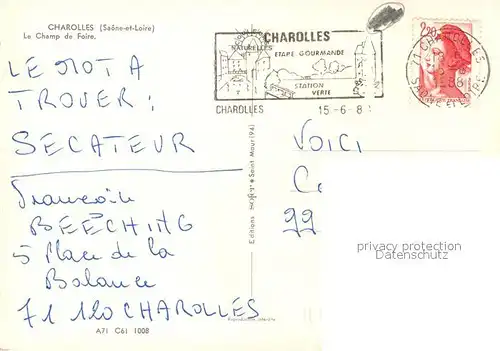 CHAROLLES (Saône-et-Loire)
Le Champ de Foire.
CHAROLLES
NATURELLES
ETAPE GOURMANDE
STATION
VERTE
CHAROLLES
15-6-8
2,20
71 CHAROLLES
SAONE ET LOIRE
LE MOT A
TROUVER:
SECATEUR
BEECHING
5 Place de la
Balance
71 120 CHAROLLES
A71 C61 1008
Editions * Saint Maur (94)
Reproduction interdite
VOICI
99
privacy protection
Datenschutz